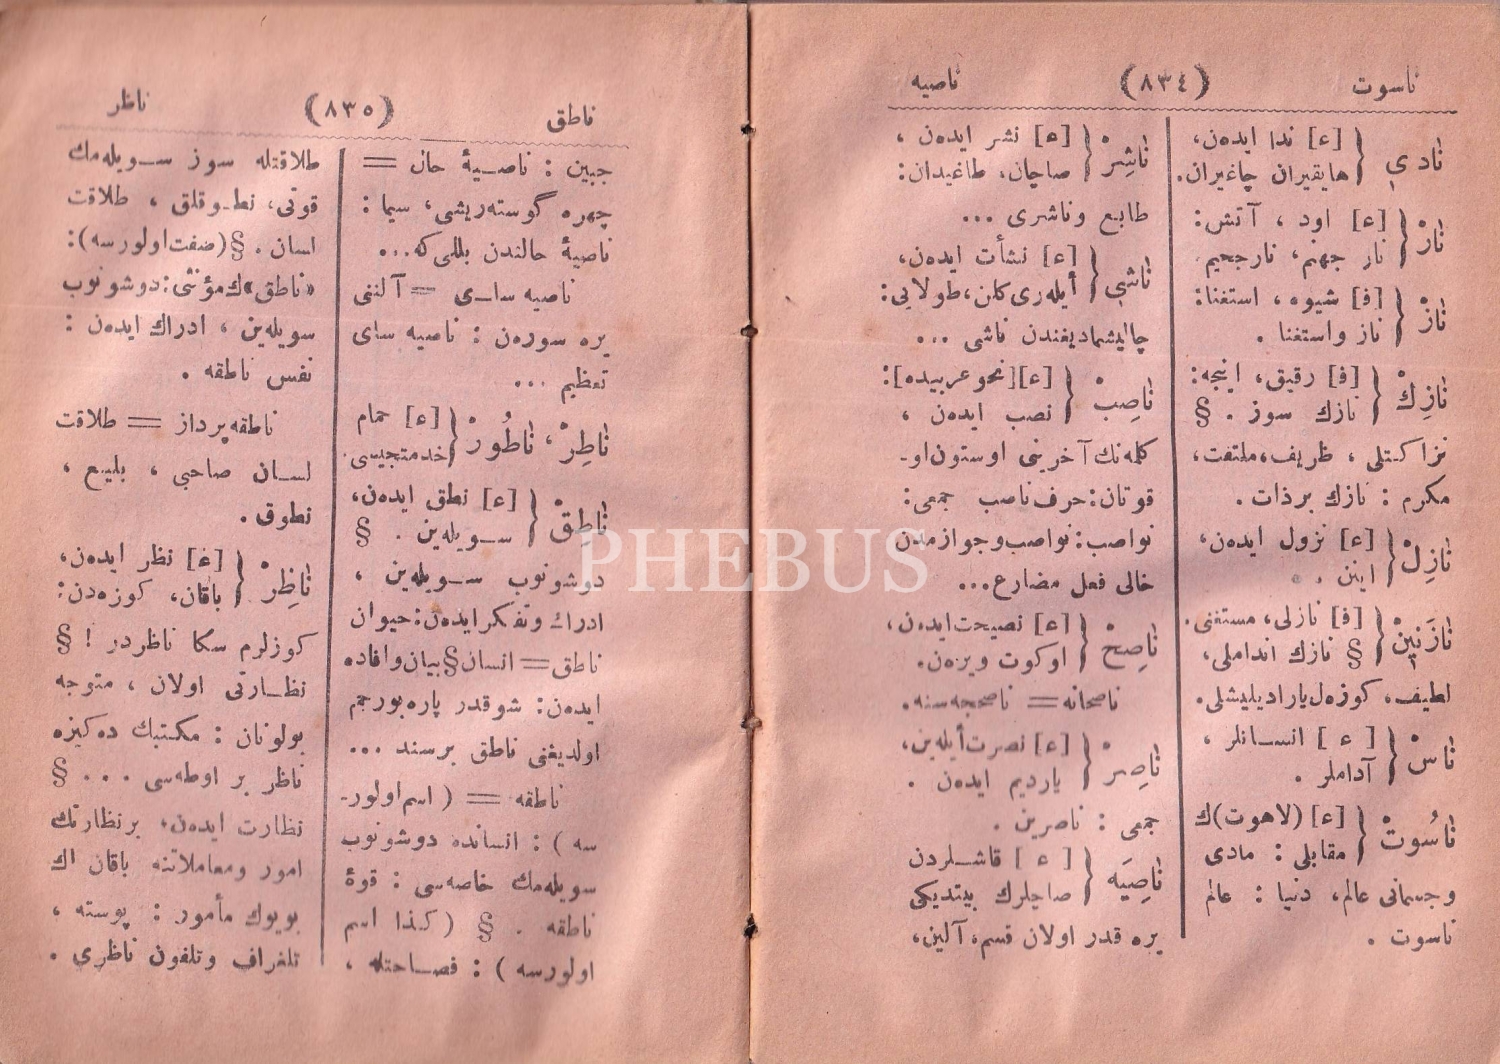 ناسوت (٨٣٤) ناصيه
نادي { [ع] ندا ايده‌ن،
هايقيران چاغيران.
نار { [ع] اود ، آتش:
نار جهنم، نارجحيم.
ناز { [ف] شيوه ، استغنا:
ناز واستغنا .
نازك { [ف] رقيق، اينجه:
نازك سوز . §
نزاكتلى ، ظريف، ملتفت،
مكرم : نازك برذات.
نازل { [ع] نزول ايده‌ن،
اينن .
نازنين { [ف] نازلى، مستغنى.
§ نازك انداملى،
لطيف، كوزه‌ل ياراديليشلى.
ناس { [ع] انسانلر ،
آداملر .
ناسوت { [ع] (لاهوت)ك
مقابلى : مادى
وجسمانى عالم، دنيا : عالم
ناسوت .
ناشر { [ع] نشر ايده‌ن ،
صاچان، طاغيدان:
طابع وناشرى ...
ناشى { [ع] نشأت ايده‌ن،
أيله‌رى كلن، طولايى:
چاليشماديغندن ناشى ...
ناصب { [ع][نحو عربيده]:
نصب ايده‌ن ،
كلمه‌نك آخرينى اوستون او-
قوتان: حرف ناصب جمعى:
نواصب: نواصب وجوازمدن
خالى فعل مضارع...
ناصح { [ع] نصيحت ايده‌ن،
اوكوت ويره‌ن.
ناصحانه = ناصحجه‌سنه.
ناصر { [ع] نصرت أيله‌ين،
يارديم ايده‌ن .
جمعى : ناصرين .
ناصيه { [ع] قاشلردن
صاچلرك بيتديكى
يره قدر اولان قسم، آلين،
ناطق (٨٣٥) ناظر
جبين : ناصيۀ حال =
چهره گوسته‌ريشى، سيما :
ناصيۀ حالندن بللى كه...
ناصيه ساى = آلننى
يره سوره‌ن : ناصيه ساى
تعظيم ...
ناطر، ناطور { [ع] حمام
خدمتجيسى.
ناطق { [ع] نطق ايده‌ن،
سويله‌ين . §
دوشونوب سويله‌ين ،
ادراك وتفكر ايده‌ن: حيوان
ناطق = انسان § بيان وافاده
ايده‌ن: شوقدر پاره بورجم
اولديغنى ناطق برسند ...
ناطقه = ( اسم اولور-
سه ) : انسانده دوشونوب
سويله‌مك خاصه‌سى : قوۀ
ناطقه . § ( كذا اسم
اولورسه ) : فصاحتله ،
طلاقتله سوز سويله‌مك
قوتى، نطوقلق ، طلاقت
لسان . § (صفت اولورسه):
«ناطق»ك مؤنثى: دوشونوب
سويله‌ين ، ادراك ايده‌ن :
نفس ناطقه .
ناطقه پرداز = طلاقت
لسان صاحبى ، بليغ ،
نطوق .
ناظر { [ع] نظر ايده‌ن،
باقان، كوزه‌دن:
كوزلرم سكا ناظردر ! §
نظارتى اولان ، متوجه
بولونان : مكتبك ده‌كيزه
ناظر بر اوطه‌سى ... §
نظارت ايده‌ن، برنظارتك
امور ومعاملاتنه باقان اك
بويوك مأمور : پوسته ،
تلغراف وتلفون ناظرى .
PHEBUS